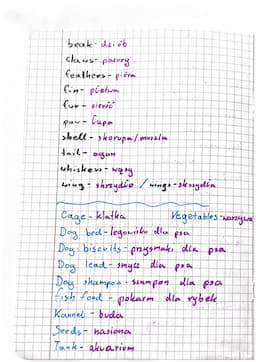 beak - dziób
claws - pazury
feathers - pióra
fin - płetwa
fur - sierść
paw - łapa
shell - skorupa/muszla
tail - ogon
whiskers - wąsy
wing - skrzydło / wings - skrzydła
Cage - klatka Vegetables - warzywa
Dog bed - legowisko dla psa
Dog biscuits - przysmaki dla psa
Dog lead - smycz dla psa
Dog shampoo - szampon dla psa
Fish food - pokarm dla rybek
Kannel - buda
Seeds - nasiona
Tank - akwarium